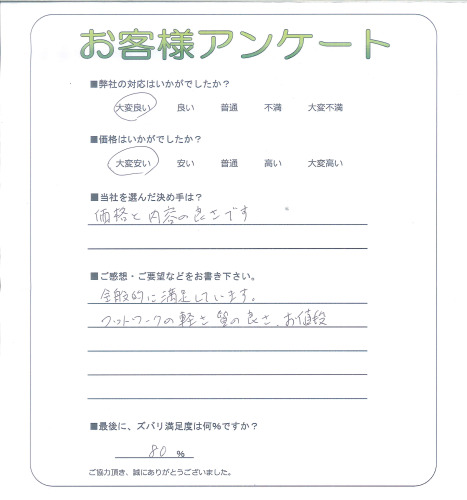 お客様アンケート
■弊社の対応はいかがでしたか？
大変良い 良い 普通 不満 大変不満
■価格はいかがでしたか？
大変安い 安い 普通 高い 大変高い
■当社を選んだ決め手は？
価格と内容の良さです
■ご感想・ご要望などをお書き下さい。
全般的に満足しています。
フットワークの軽さ 質の良さ、お値段
■最後に、ズバリ満足度は何％ですか？
80 ％
ご協力頂き、誠にありがとうございました。